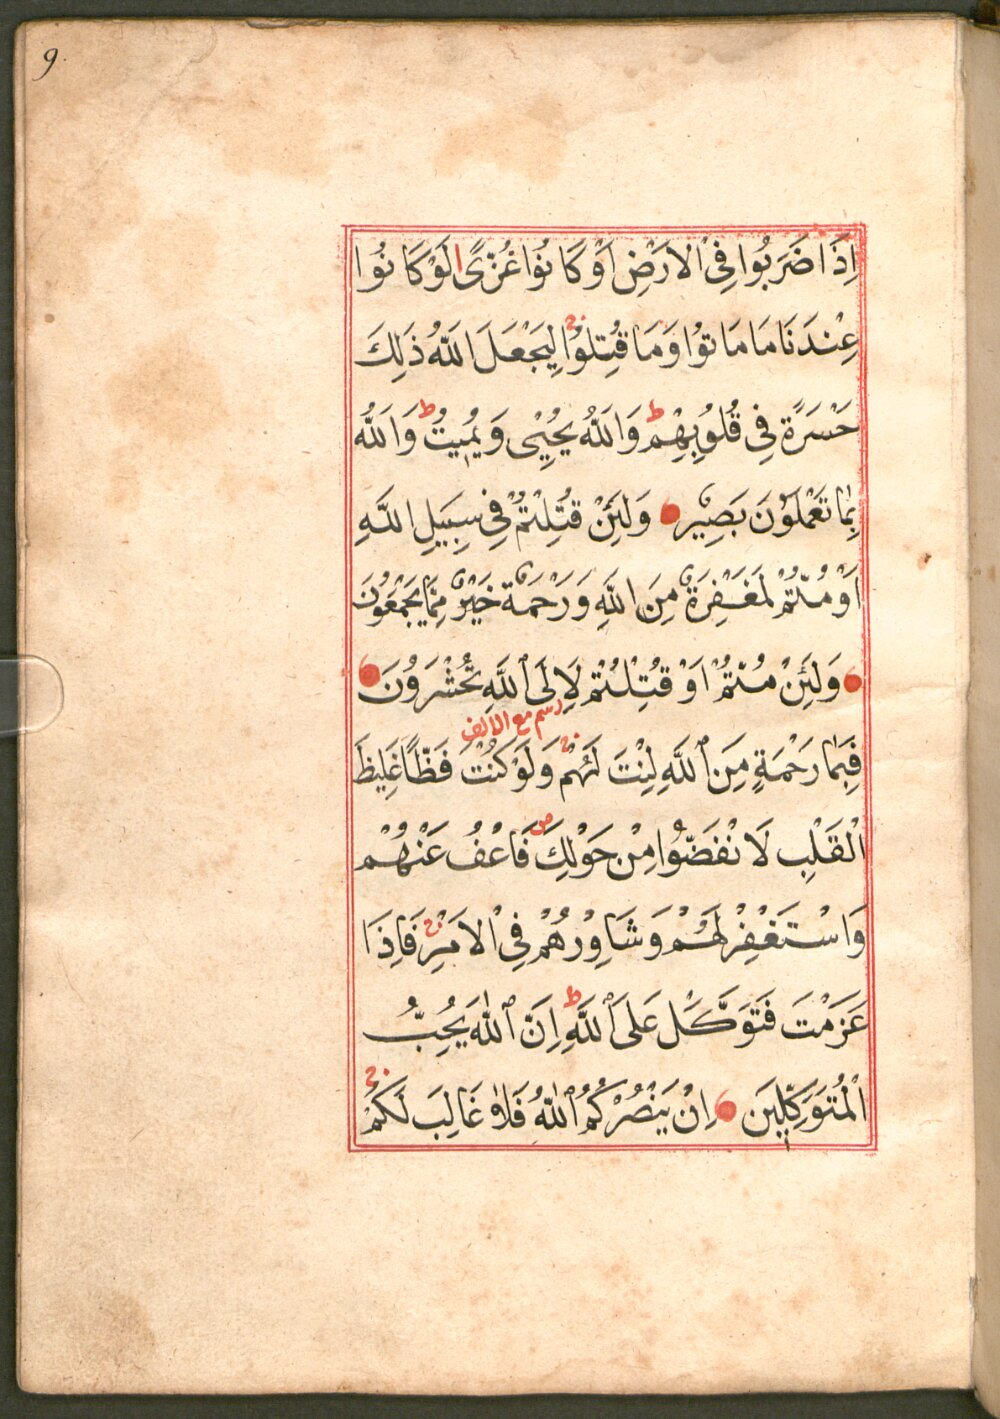 9
اِذَا ضَرَبُوا فِى الْاَرْضِ اَوْ كَانُوا غُزًّى لَوْ كَانُوا
عِنْدَنَا مَا مَاتُوا وَمَا قُتِلُوا ج لِيَجْعَلَ اللّٰهُ ذٰلِكَ
حَسْرَةً فِى قُلُوبِهِمْ ط وَاللّٰهُ يُحْيِى وَيُمِيتُ ط وَاللّٰهُ
بِمَا تَعْمَلُونَ بَصِيرٌ وَلَئِنْ قُتِلْتُمْ فِى سَبِيلِ اللّٰهِ
اَوْ مُتُّمْ لَمَغْفِرَةٌ مِنَ اللّٰهِ وَرَحْمَةٌ خَيْرٌ مِمَّا يَجْمَعُونَ
وَلَئِنْ مُتُّمْ اَوْ قُتِلْتُمْ لَاِلَى اللّٰهِ تُحْشَرُونَ
رسم مع الالف
فَبِمَا رَحْمَةٍ مِنَ اللّٰهِ لِنْتَ لَهُمْ ج وَلَوْ كُنْتَ فَظًّا غَلِيظَ
الْقَلْبِ لَانْفَضُّوا مِنْ حَوْلِكَ ص فَاعْفُ عَنْهُمْ
وَاسْتَغْفِرْ لَهُمْ وَشَاوِرْهُمْ فِى الْاَمْرِ ج فَاِذَا
عَزَمْتَ فَتَوَكَّلْ عَلَى اللّٰهِ ط اِنَّ اللّٰهَ يُحِبُّ
الْمُتَوَكِّلِينَ اِنْ يَنْصُرْكُمُ اللّٰهُ فَلَا غَالِبَ لَكُمْ ج